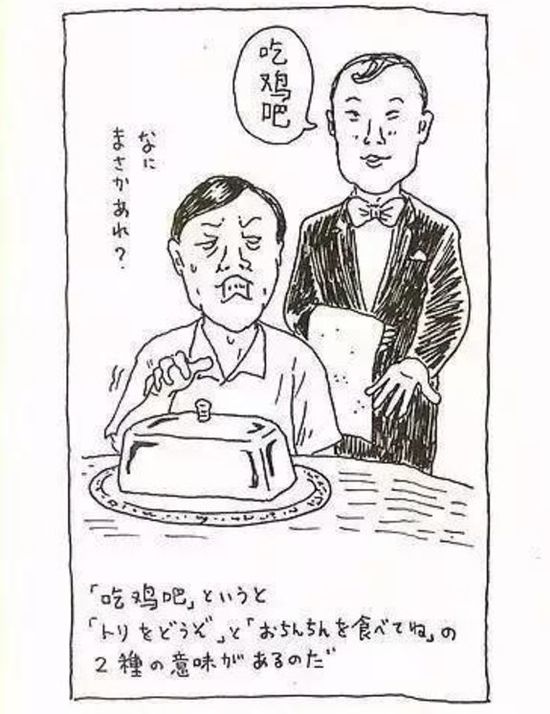 吃鸡吧
なに
まさかあれ？
「吃鸡吧」というと
「トリをどうぞ」と「おちんちんを食べてね」の
2種の意味があるのだ